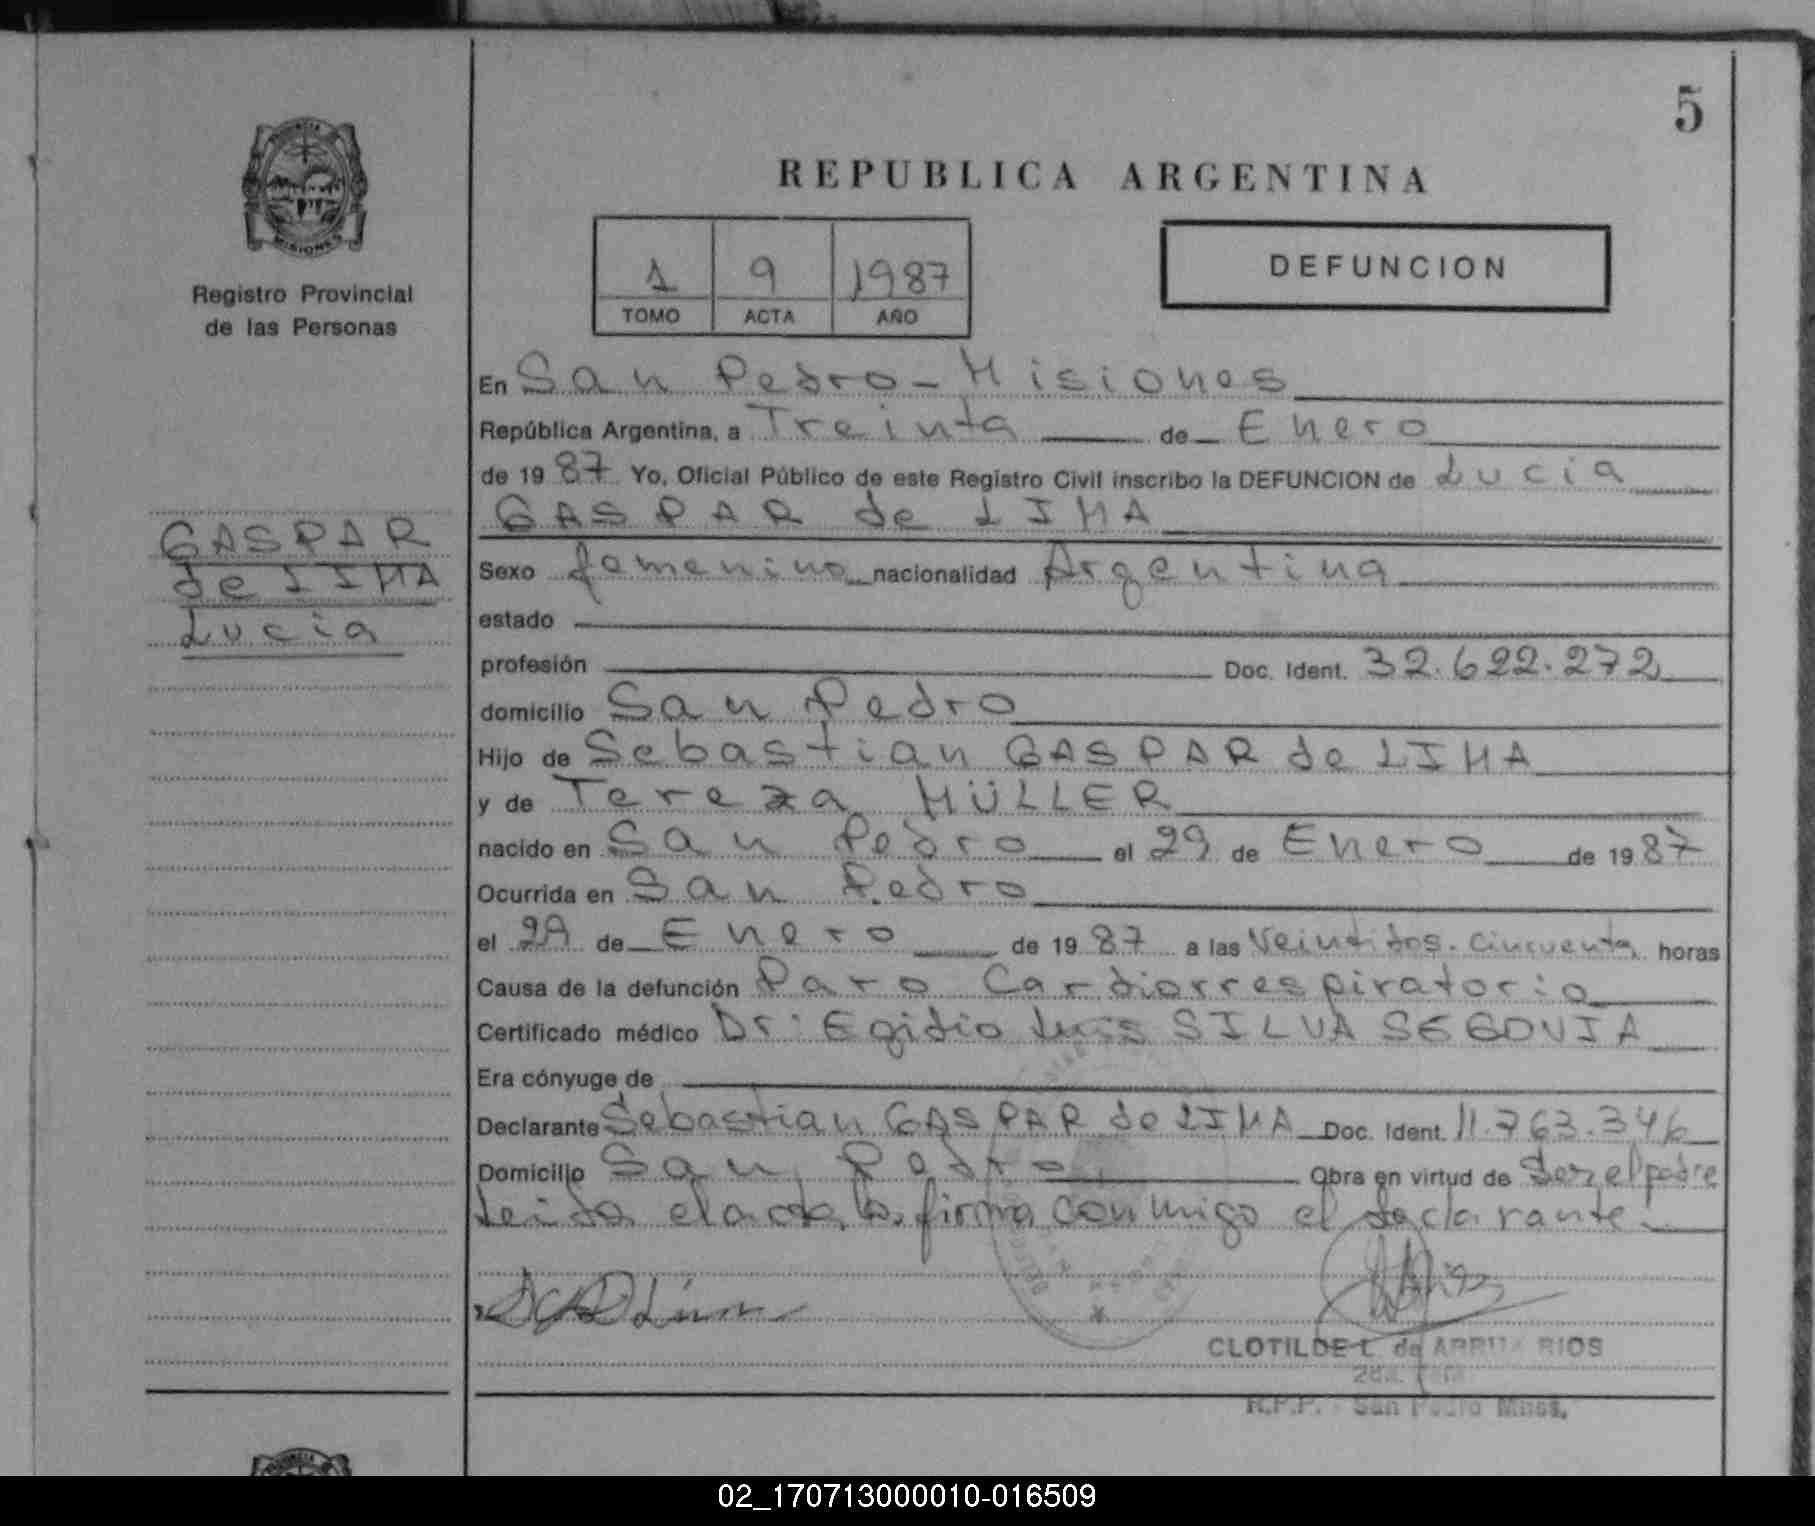 5
PROVINCIA
MISIONES
Registro Provincial
de las Personas
REPUBLICA ARGENTINA
1 9 1987
TOMO ACTA AÑO
DEFUNCION
En San Pedro - Misiones
República Argentina, a Treinta de Enero
de 19 87 Yo, Oficial Público de este Registro Civil inscribo la DEFUNCION de Lucia
GASPAR de LIMA
GASPAR
de LIMA
Lucia
Sexo femenino nacionalidad Argentina
estado
profesión Doc. Ident. 32.622.272
domicilio San Pedro
Hijo de Sebastian GASPAR de LIMA
y de Tereza MÜLLER
nacido en San Pedro el 29 de Enero de 19 87
Ocurrida en San Pedro
el 29 de Enero de 19 87 a las Veintidos. Cincuenta horas
Causa de la defunción Paro Cardiorrespiratorio
Certificado médico Dr: Egidio Luis SILVA SEGOVIA
Era cónyuge de
Declarante Sebastian GASPAR de LIMA Doc. Ident. 11.763.346
Domicilio San Pedro Obra en virtud de Ser el padre
Leida el acta, la firma conmigo el declarante.
CLOTILDE L. de ARRUA RIOS
R.P.P. - San Pedro Mnes.
02_170713000010-016509